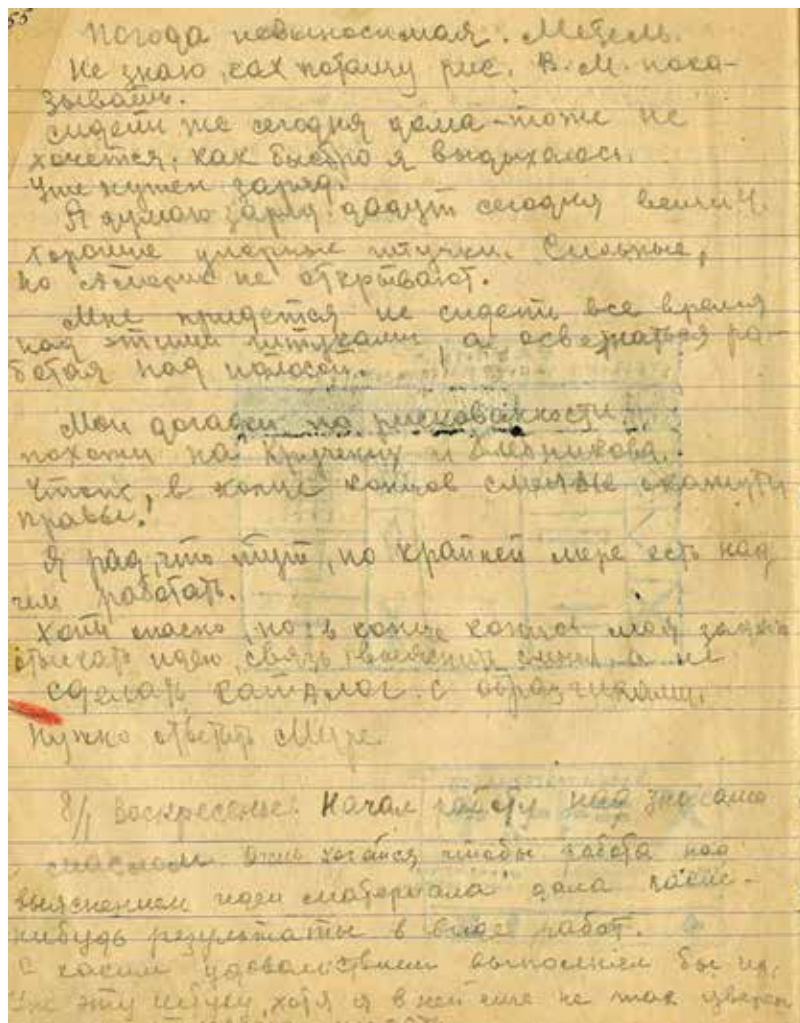 55
Погода невыносимая. Метель.
Не знаю, как потащу рис. В. М. пока-
зывать.
Сидеть же сегодня дома – тоже не
хочется. Как быстро я выдыхаюсь.
Уже нужен заряд.
Я думаю заряд дадут сегодня
Хорошие ударные штучки. Сильные,
но не открывают.
Мне придется не сидеть все время
над этими штуками, а освежаться ра-
ботая над полосой.
Мои догадки по рискованности
похожи на Крученых и Хлебникова.
Что ж, в конце концов смелые окажутся
правы!
Я рад, что тут, по крайней мере есть над
чем работать.
Хотя опасно, но в конце концов моя задача
отыскать идею, связь, выяснить а не
сделать каталог с образчиками.
Нужно ответить Мире.
8/I Воскресенье. Начал работу над знаками
маслом. Очень хочется чтобы работа над
выяснением идеи материала дала какие-
нибудь результаты в виде работ.
С каким удовольствием выполнил бы я
Уже эту штуку, хотя я в ней еще не так уверен